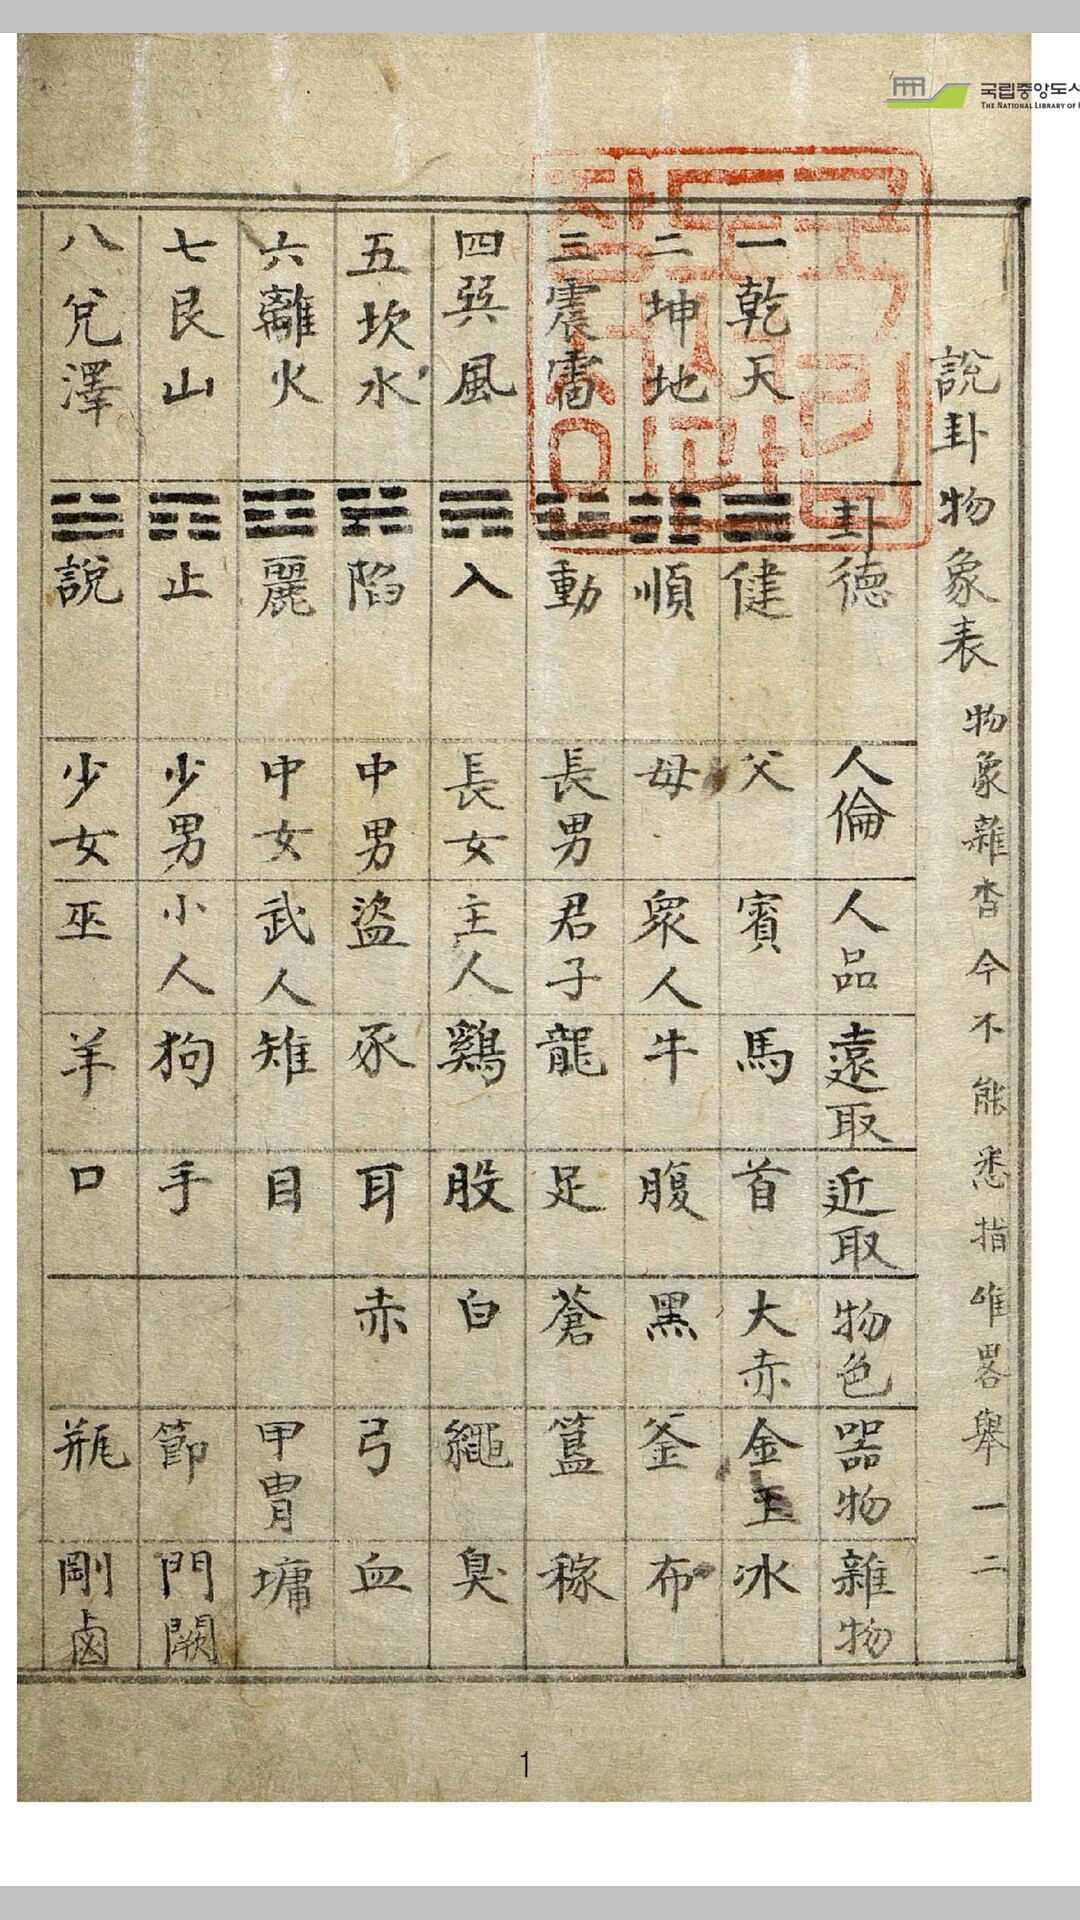 국립중앙도서
THE NATIONAL LIBRARY OF
說卦物象表 物象雜沓今不能悉指唯畧舉一二
卦德 人倫 人品 遠取 近取 物色 器物 雜物
一乾天 ☰ 健 父 賓 馬 首 大赤 金玉 冰
二坤地 ☷ 順 母 衆人 牛 腹 黑 釜 布
三震雷 ☳ 動 長男 君子 龍 足 蒼 簋 稼
四巽風 ☴ 入 長女 主人 鷄 股 白 繩 臭
五坎水 ☵ 陷 中男 盜 豕 耳 赤 弓 血
六離火 ☲ 麗 中女 武人 雉 目 甲冑 墉
七艮山 ☶ 止 少男 小人 狗 手 節 門闕
八兌澤 ☱ 說 少女 巫 羊 口 瓶 剛鹵
1